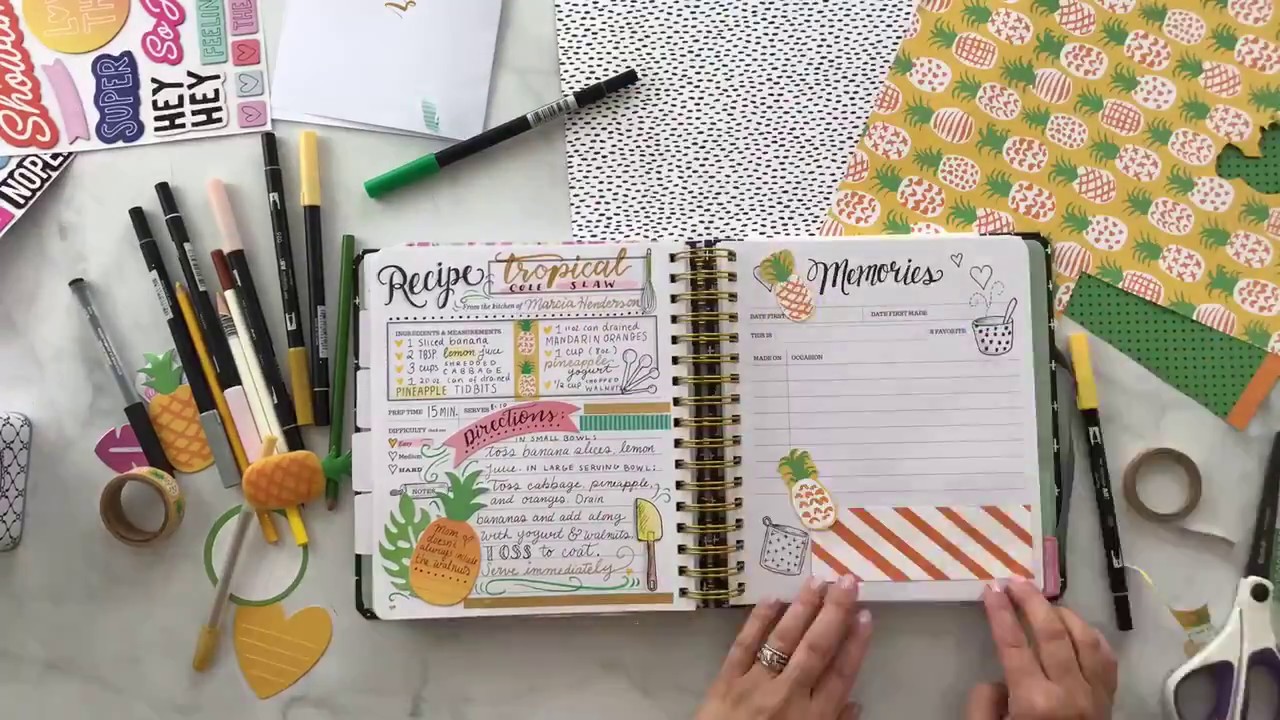 Showin
LOVE
THIS
So J
FEELIN
THE
SUPER
HEY
HEY
NOPE
Recipe
tropical
COLE SLAW
From the kitchen of Marcia Henderson
INGREDIENTS & MEASUREMENTS
1 Sliced banana
2 TBSP lemon juice
3 cups SHREDDED CABBAGE
1 20oz can of drained
PINEAPPLE TIDBITS
1 11oz can drained
MANDARIN ORANGES
1 cup (8oz)
pineapple
yogurt
½ cup CHOPPED WALNUTS
PREP TIME 15 MIN. SERVES 8-10
DIFFICULTY
Easy
Medium
HARD
NOTES
Mom
doesn't
always include
the walnuts
Directions:
IN SMALL BOWL:
toss banana slices, lemon
juice. IN LARGE SERVING BOWL:
Toss cabbage, pineapple,
and oranges. Drain
bananas and add along
with yogurt & walnuts.
TOSS to coat.
Serve immediately
Memories
DATE FIRST
DATE FIRST MADE
THIS IS
'S FAVORITE
MADE ON
OCCASION